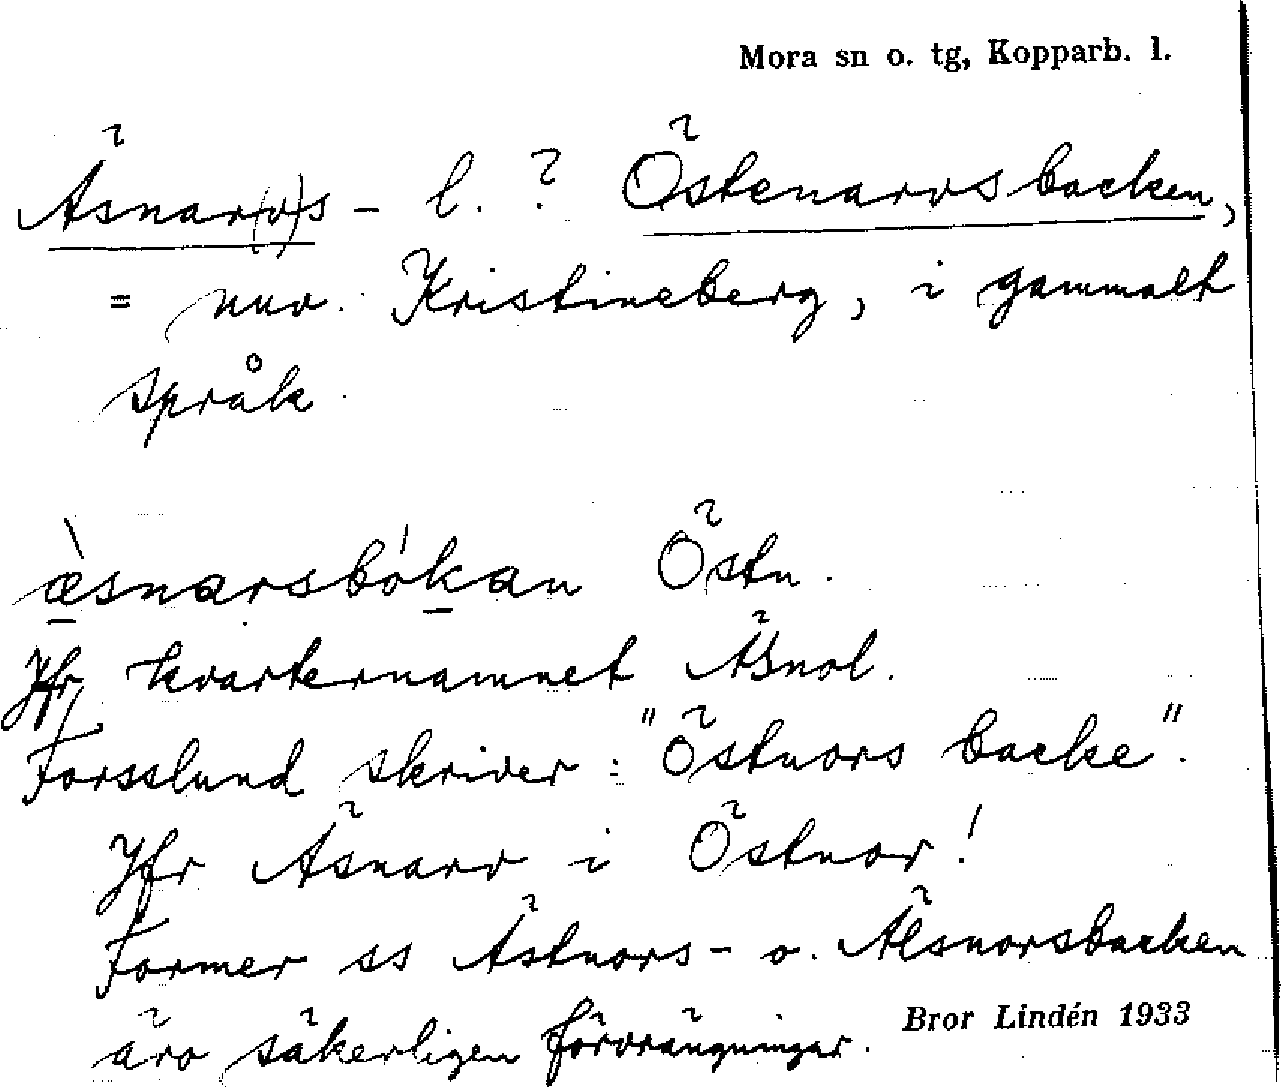 Mora sn o. tg, Kopparb. l.
Äsnar(v)s- l. ? Östenarvsbacken,
= nuv. Kristineberg, i gammalt
språk.
æ̠̀snarsbók̠an Östn.
Jfr kvarternamnet Äsnol.
Forsslund skriver: "Östnors backe".
Jfr Äsnarv i Östnor!
Former ss Ästnors- o. Älsnorsbacken
äro säkerligen förvrängningar.
Bror Lindén 1933